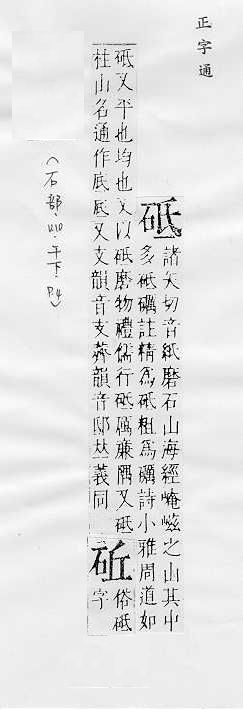 正字通
砥
諸矢切音紙磨石山海經崦嵫之山其中
多砥礪註精為砥粗為礪詩小雅周道如
砥又平也均也又以砥磨物禮儒行砥厲廉隅又砥
柱山名通作底厎又支韻音支薺韻音邸𠀤義同
𥐨
俗砥
字
(石部 午下 P.4)